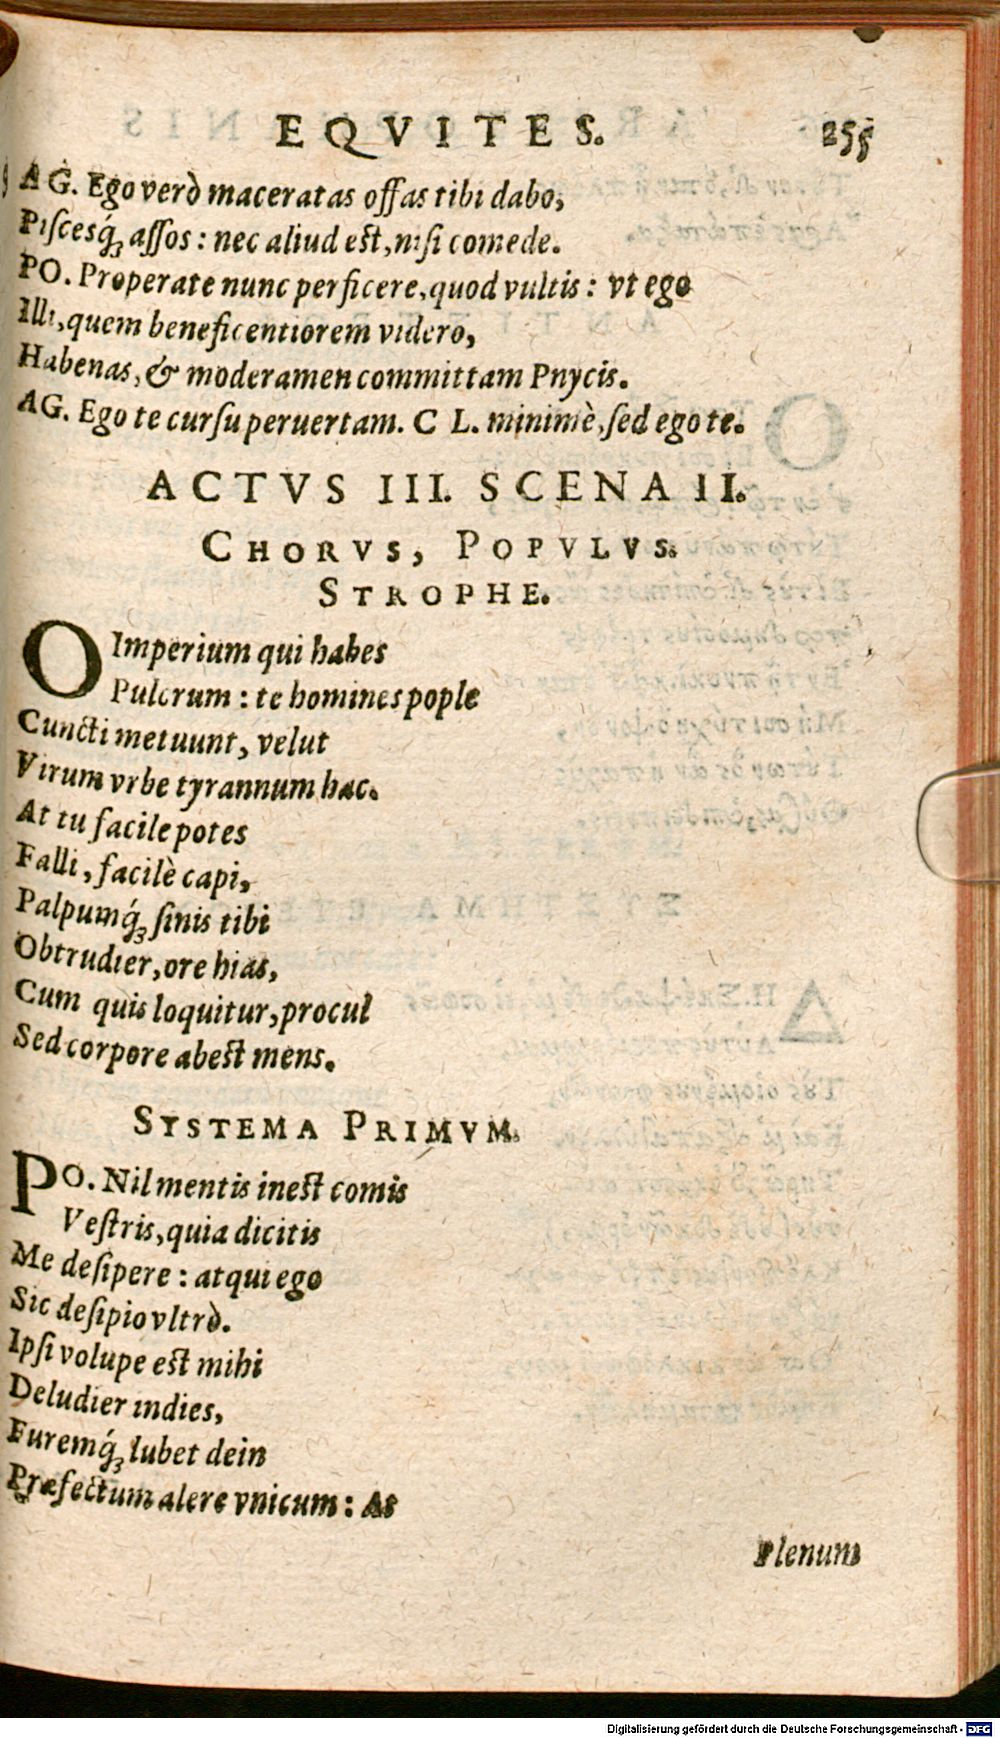 EQVITES. 255
AG. Ego verò maceratas offas tibi dabo,
Piſcesq́ꝫ aſſos: nec aliud eſt, niſi comede.
PO. Properate nunc perficere, quod vultis: vt ego
Illi, quem beneficentiorem videro,
Habenas, & moderamen committam Pnycis.
AG. Ego te curſu peruertam. C L. minimè, ſed ego te.
ACTVS III. SCENA II.
CHORVS, POPVLVS.
STROPHE.
O Imperium qui habes
Pulcrum: te homines pople
Cuncti metuunt, velut
Virum vrbe tyrannum hac.
At tu facile potes
Falli, facilè capi,
Palpumq́ꝫ ſinis tibi
Obtrudier, ore hias,
Cum quis loquitur, procul
Sed corpore abeſt mens.
SYSTEMA PRIMVM.
PO. Nil mentis ineſt comis
Veſtris, quia dicitis
Me deſipere: atqui ego
Sic deſipio vltrò.
Ipſi volupe eſt mihi
Deludier indies,
Furemq́ꝫ lubet dein
Præfectum alere vnicum: At
Plenum
Digitalisierung gefördert durch die Deutsche Forschungsgemeinschaft - DFG